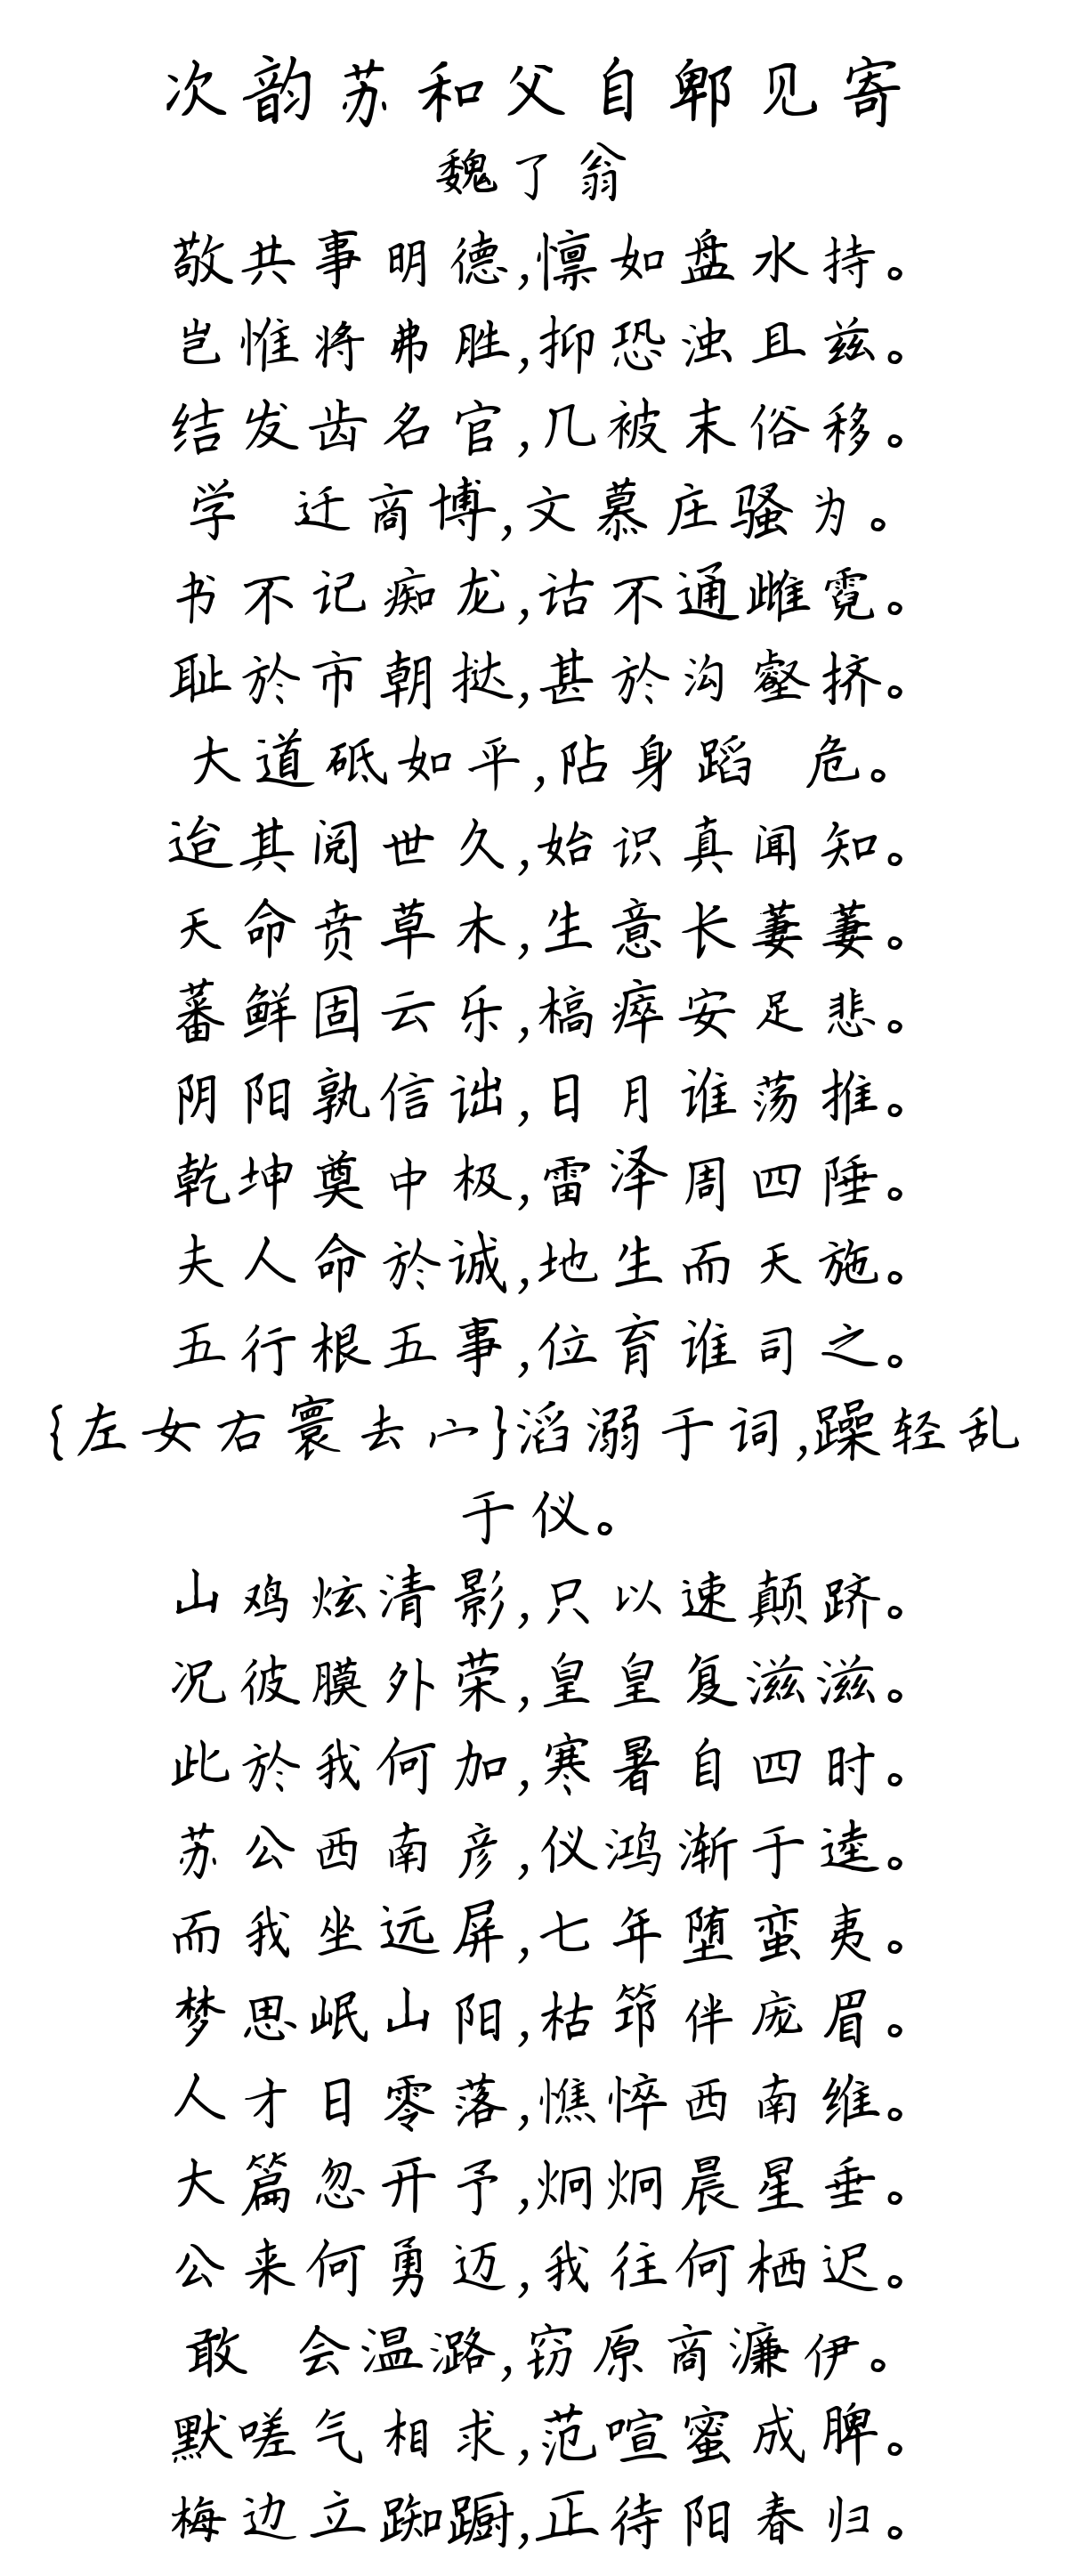 次韵苏和父自郫见寄
魏了翁
敬共事明德,懔如盘水持。
岂惟将弗胜,抑恐浊且兹。
结发齿名官,几被末俗移。
学 迁商博,文慕庄骚为。
书不记痴龙,诂不通雌霓。
耻於市朝挞,甚於沟壑挤。
大道砥如平,阽身蹈 危。
迨其阅世久,始识真闻知。
天命贲草木,生意长萋萋。
蕃鲜固云乐,槁瘁安足悲。
阴阳孰信诎,日月谁荡推。
乾坤奠中极,雷泽周四陲。
夫人命於诚,地生而天施。
五行根五事,位育谁司之。
{左女右寰去宀}滔溺于词,躁轻乱
于仪。
山鸡炫清影,只以速颠跻。
况彼膜外荣,皇皇复滋滋。
此於我何加,寒暑自四时。
苏公西南彦,仪鸿渐于逵。
而我坐远屏,七年堕蛮夷。
梦思岷山阳,枯筇伴庞眉。
人才日零落,憔悴西南维。
大篇忽开予,炯炯晨星垂。
公来何勇迈,我往何栖迟。
敢 会温潞,窃原商濂伊。
默嗟气相求,范喧蜜成脾。
梅边立踟蹰,正待阳春归。